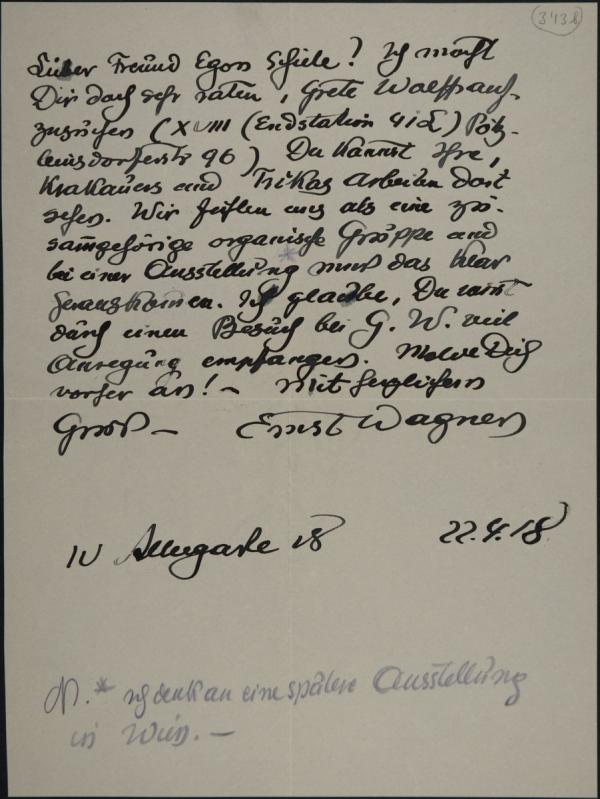 3438
Lieber Freund Egon Schiele! Ich möcht
Dir doch sehr raten, Grete Wolf aufzu-
zusuchen (XVIII (Endstation 41er) Pötz-
leinsdorferstr 96) Du kannst Ihre,
Krakauers und Trikas Arbeiten dort
sehen. Wir fühlen uns als eine zu-
samgehörige organische Gruppe und
bei einer Ausstellung * muß das klar
herauskommen. Ich glaube, Du wirst
durch einen Besuch bei G. W. viel
Anregung empfangen. Melde Dich
vorher an! – Mit herzlichem
Gruß – Ernst Wagner
IV Alleegasse 18 22.4.18
* Ich denk an eine spätere Ausstellung
in Wien. –